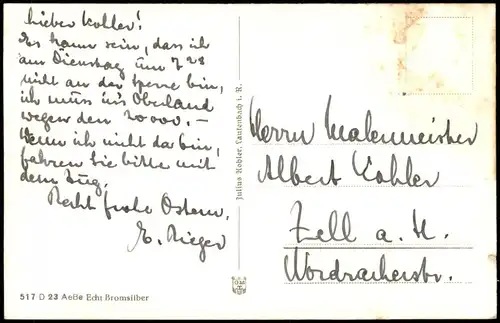 Lieber Koller!
Es kann sein, dass ich
am Dienstag um 7 28
nicht an der Sperre bin,
ich muss ins Oberland
wegen den 20000.-
Wenn ich nicht da bin,
fahren Sie bitte mit
dem Zug.
Recht frohe Ostern,
E. Rieger
517 D 23 AeBe Echt Bromsilber
Julius Kohler, Lautenbach i. R.
Herrn Malermeister
Albert Kohler
Zell a. H.
Nordracherstr.